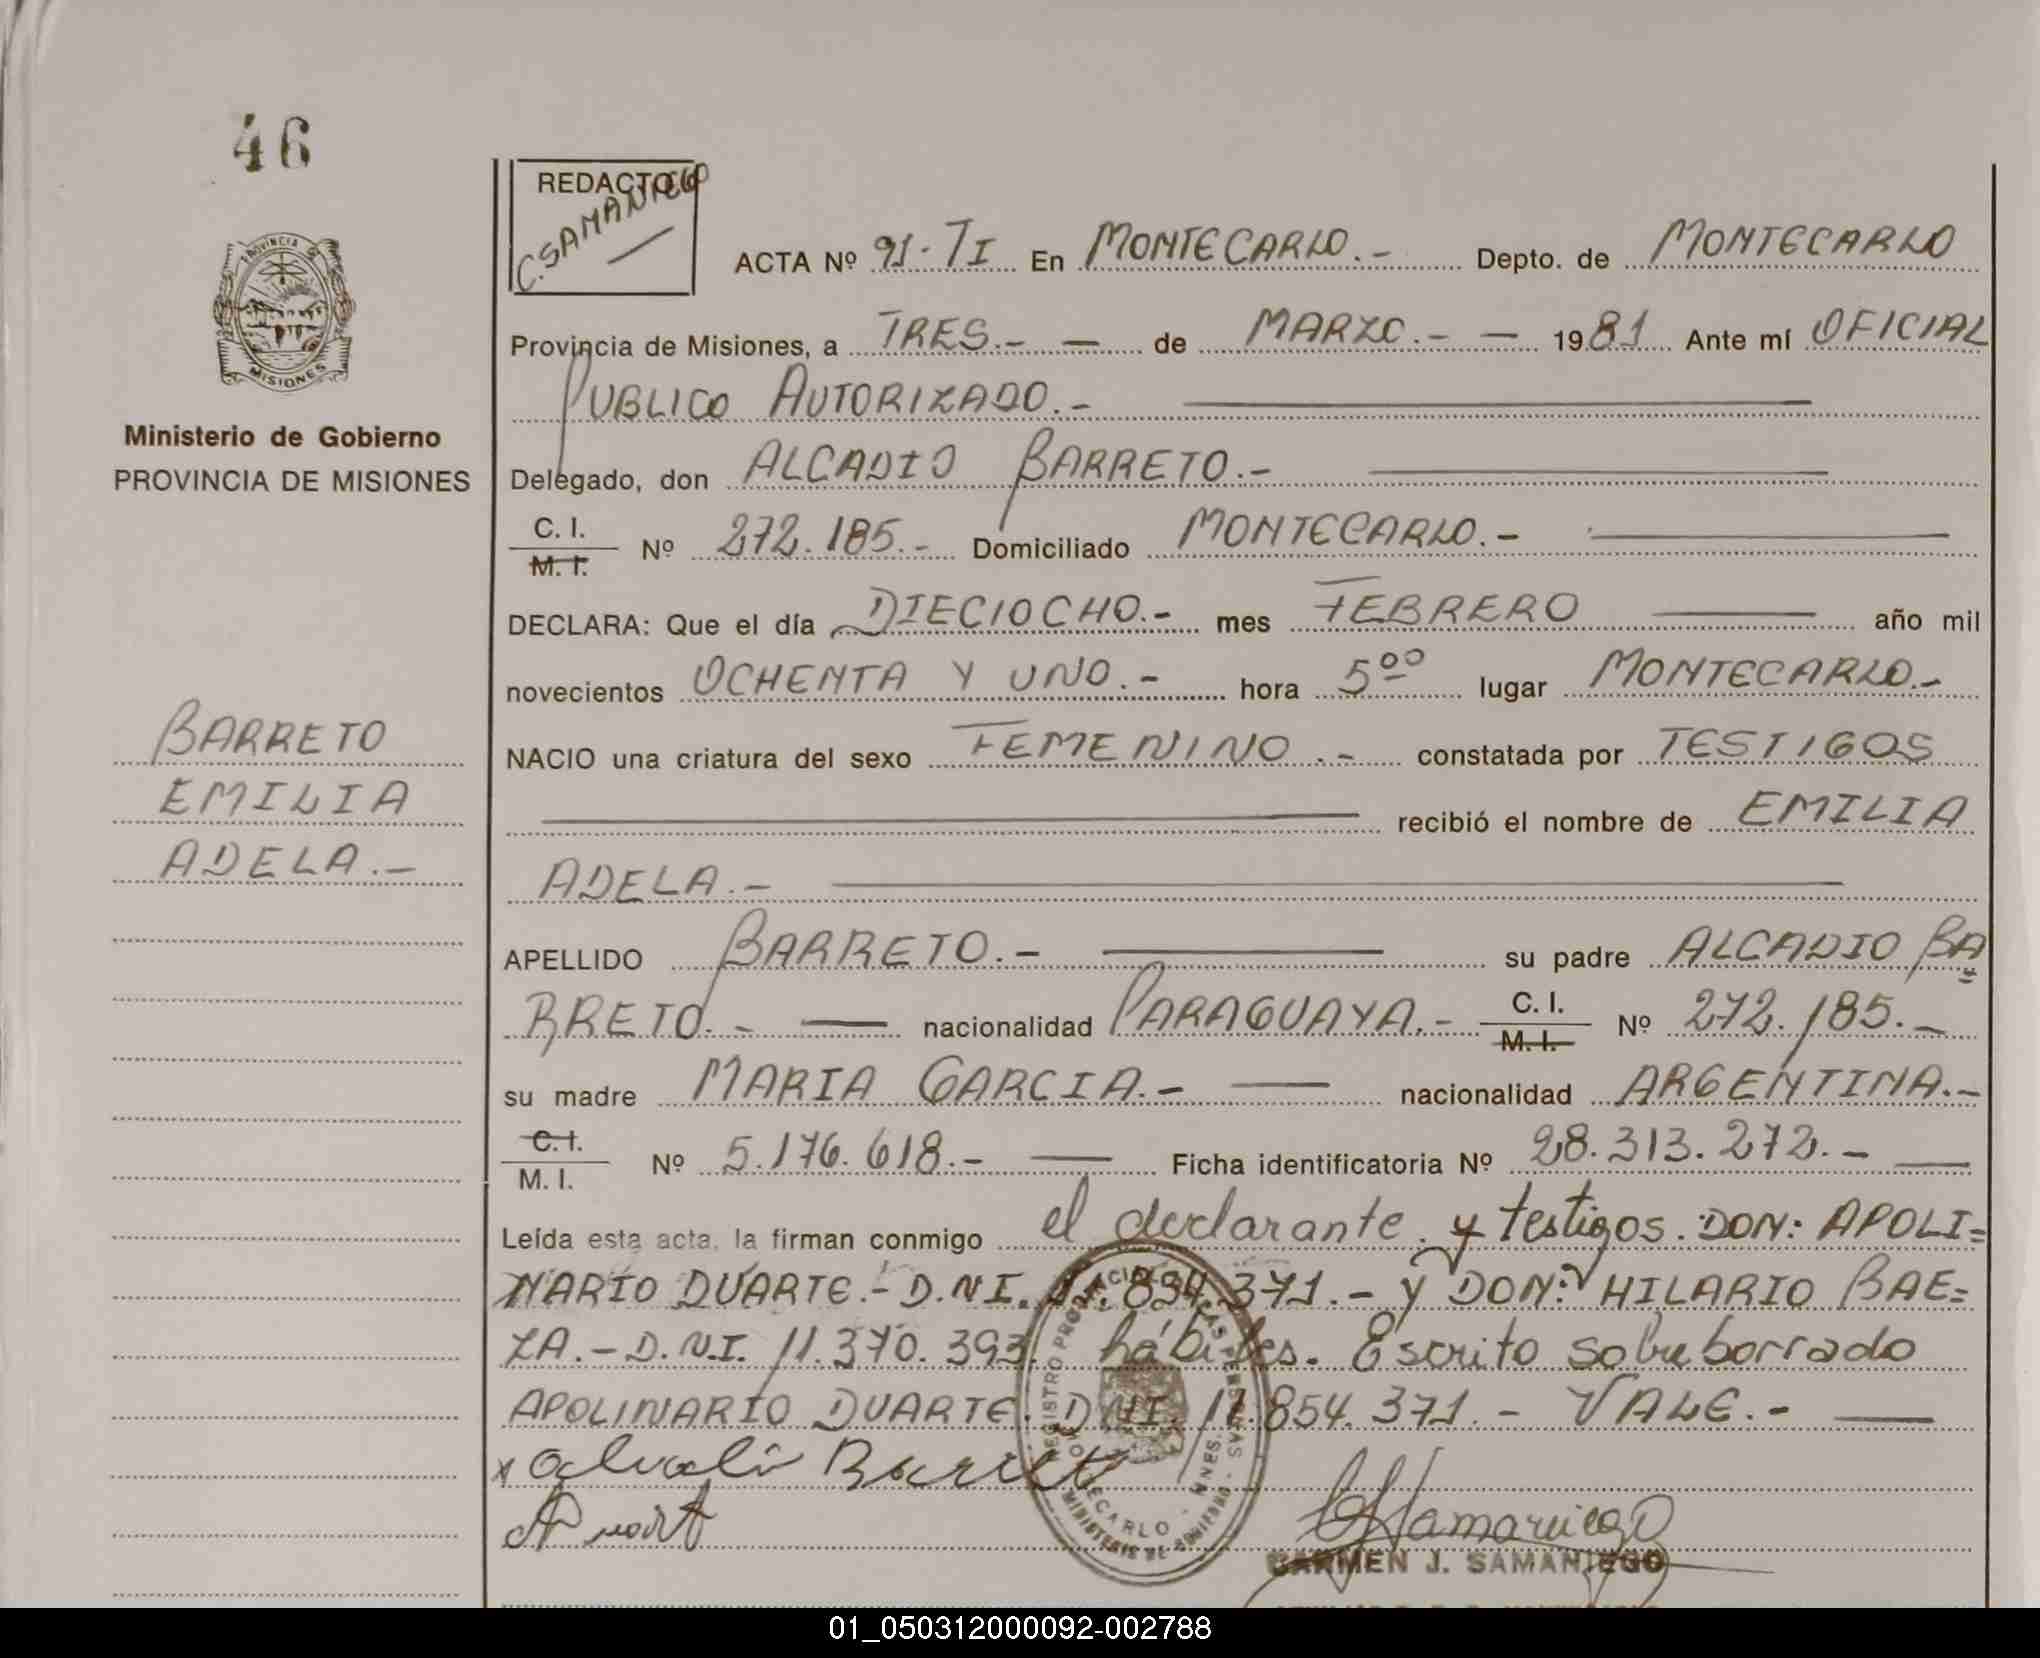 46
REDACTO
C. SAMANIEGO
ACTA Nº 91-TI En MONTECARLO.- Depto. de MONTECARLO
Provincia de Misiones, a TRES.- — de MARZO.- — 1981 Ante mí OFICIAL
PUBLICO AUTORIZADO.-
Delegado, don ALCADIO BARRETO.-
C. I.
M. I. Nº 272.185.- Domiciliado MONTECARLO.-
DECLARA: Que el día DIECIOCHO.- mes FEBRERO año mil
novecientos OCHENTA Y UNO.- hora 5ºº lugar MONTECARLO.-
NACIO una criatura del sexo FEMENINO.- constatada por TESTIGOS
recibió el nombre de EMILIA
ADELA.-
APELLIDO BARRETO.- su padre ALCADIO BA=
RRETO.- — nacionalidad PARAGUAYA.- C. I.
M. I. Nº 272.185.-
su madre MARIA GARCIA.- — nacionalidad ARGENTINA.-
C. I.
M. I. Nº 5.176.618.- — Ficha identificatoria Nº 28.313.272.-
Leída esta acta, la firman conmigo el declarante y testigos. DON: APOLI=
NARIO DUARTE.- D.N.I. 371.- y DON: HILARIO BAE=
ZA.- D.N.I. 11.370.393 hábiles. Escrito sobreborrado
APOLINARIO DUARTE. D.N.I. 11.854.371.- VALE.-
Barreto
CARMEN J. SAMANIEGO
PROVINCIA
MISIONES
Ministerio de Gobierno
PROVINCIA DE MISIONES
BARRETO
EMILIA
ADELA.-
01_050312000092-002788